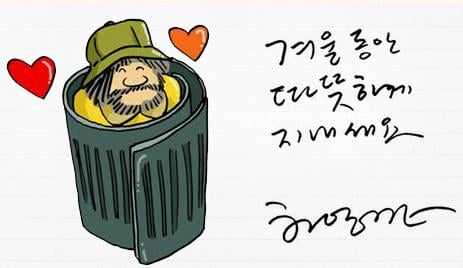 겨울 동안
따뜻하게
지내세요
허영만